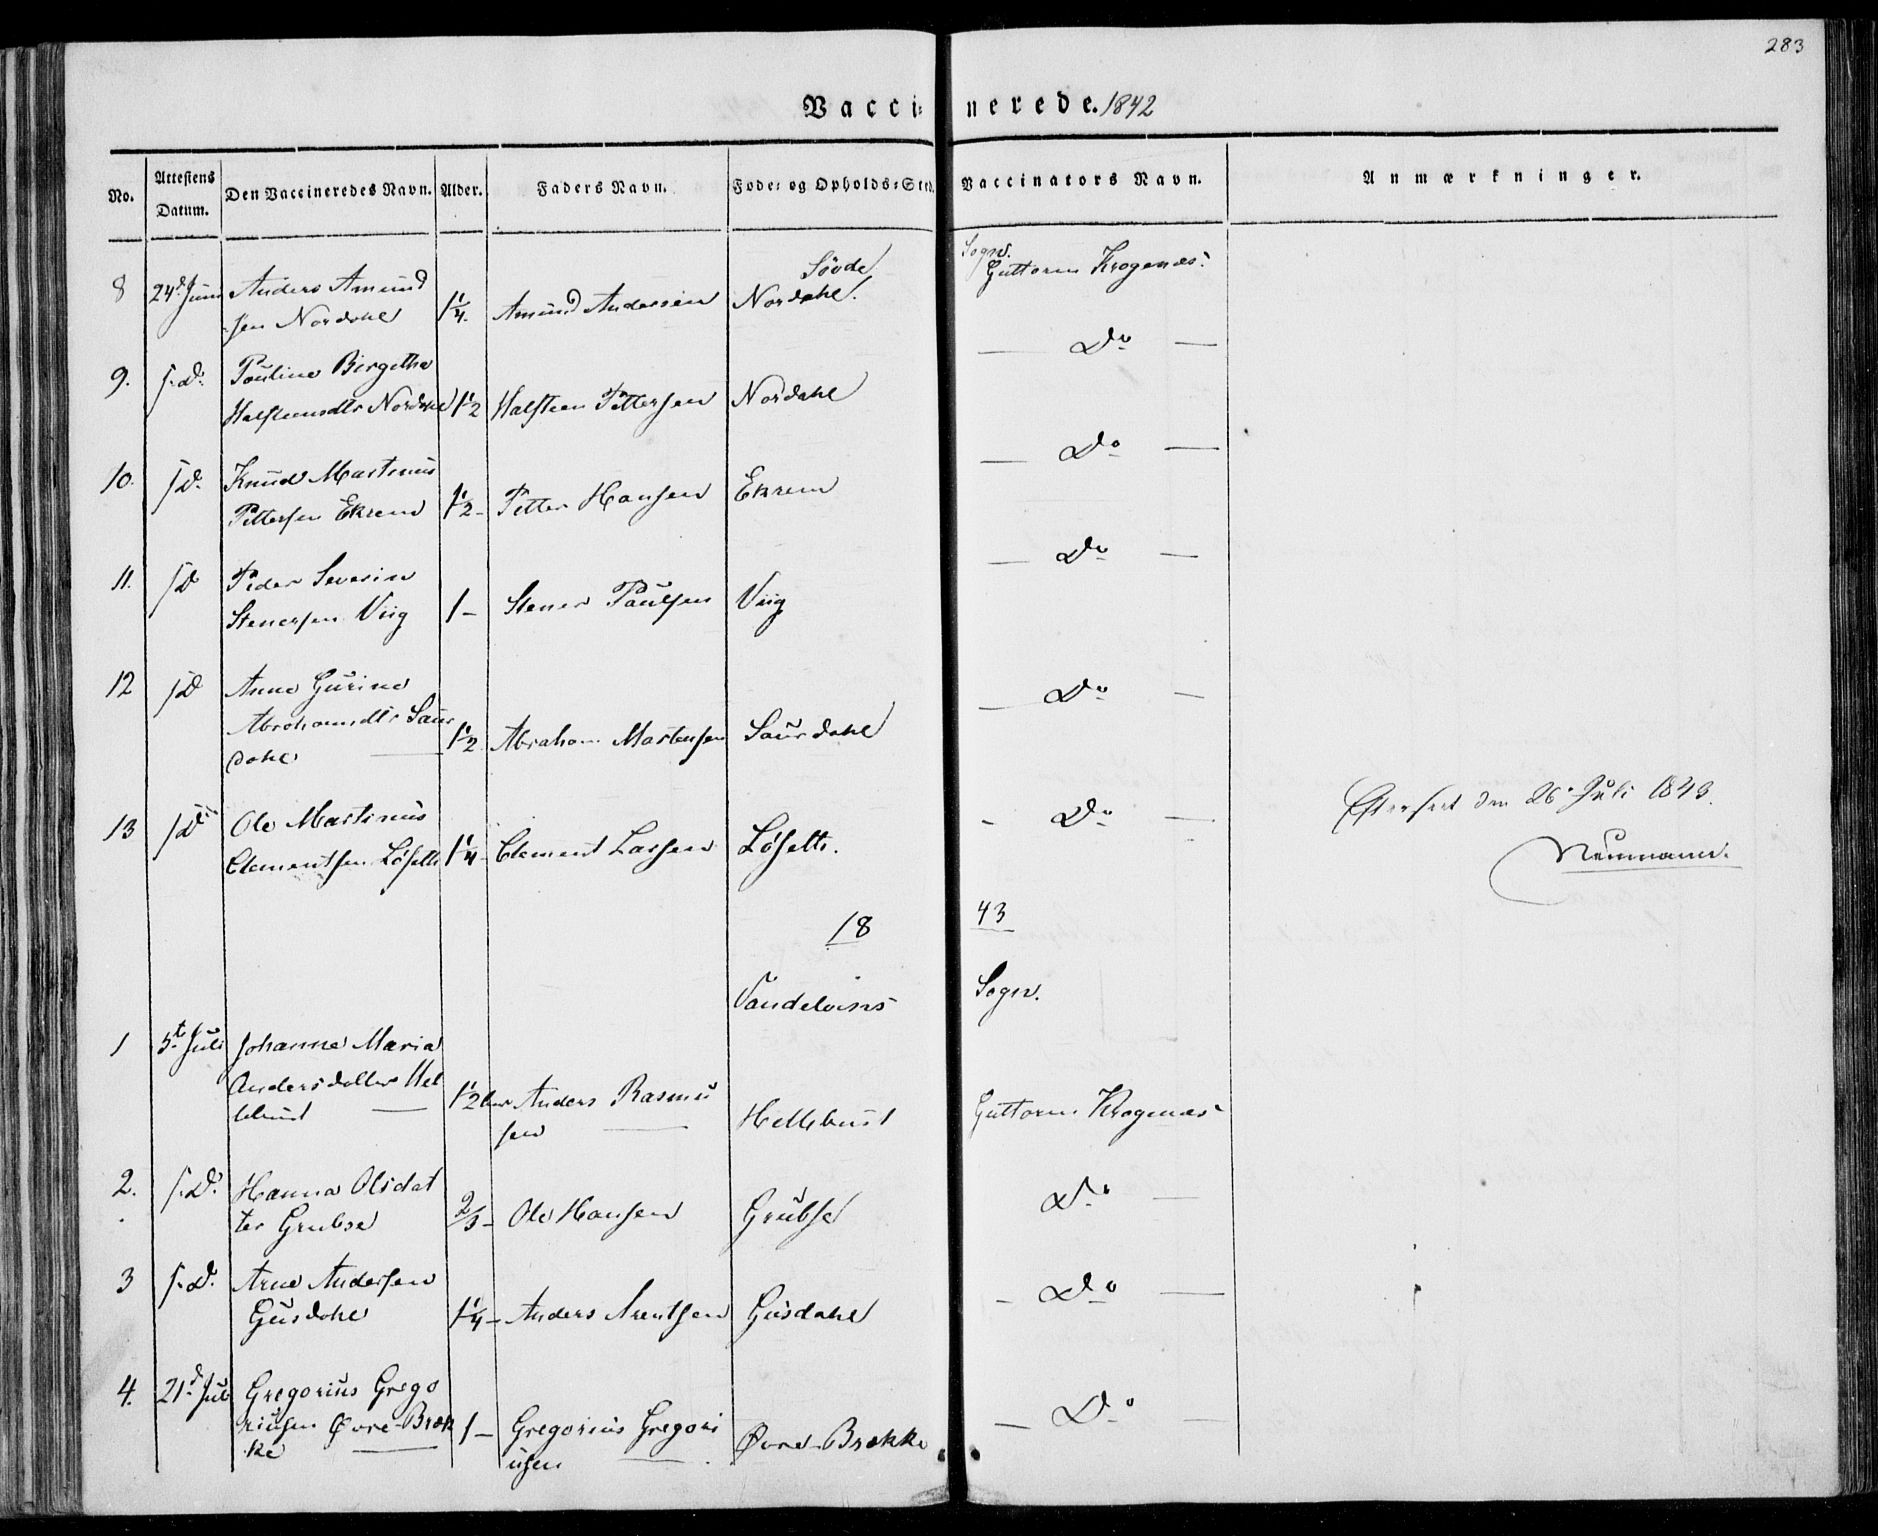 283
Vaccinerede. 1842
No. Attestens Datum. Den Vaccineredes Navn. Alder. Faders Navn. Føde- og Opholds-Sted. Vaccinators Navn. Anmærkninger.
Søvde Sogn.
8 24d Juni Anders Amund
sen Nordahl 1 1/4. Amund Andersen Nordahl. Guttorm Krogenæs.
9. s.D. Pauline Birgethe
Halsteensdtr Nordahl 1 1/2 Halsteen Pettersen Nordahl — Do —
10. s.D. Knud Martinus
Pettersen Ekrem 1 1/2 - Petter Hansen Ekrem — Do —
11. s.D Peder Severin
Stenersen Viig 1 - Stener Paulsen Viig — Do —
12 s.D Anne Gurine
Abrahamsdtr Saur
dahl — 1 1/2 Abraham Martensen Saurdahl — Do —
13 s.D Ole Martinus
Clementsen Løseth 1 1/4 - Clement Larsen Løseth. - Do —
Efterseet den 26. Juli 1843.
Neumann.
18 43
Vandelvens Sogn.
1 5t Juli Johanne Maria
Andersdatter Hel
lebust — 1 1/2 Anders Rasmu
sen — Hellebust Guttorm Krogenæs
2. s.D. Hanna Olsdat
ter Grubse 2/3 - Ole Hansen Grubse Do —
3 s.D. Arne Andersen
Gusdahl 1 1/4 - Anders Arentsen Gusdahl - Do —
4. 21d Juli Gregorius Grego
riusen Øvre-Bræk
ke — 1 - Gregorius Gregori
usen — Øvre-Brække — Do —